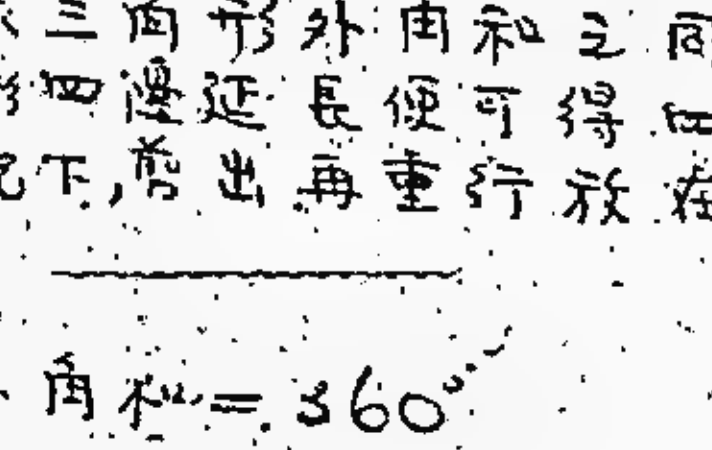 三角形外角和之同
四邊延長便可得四
下,剪出再重行放在
角和=360°